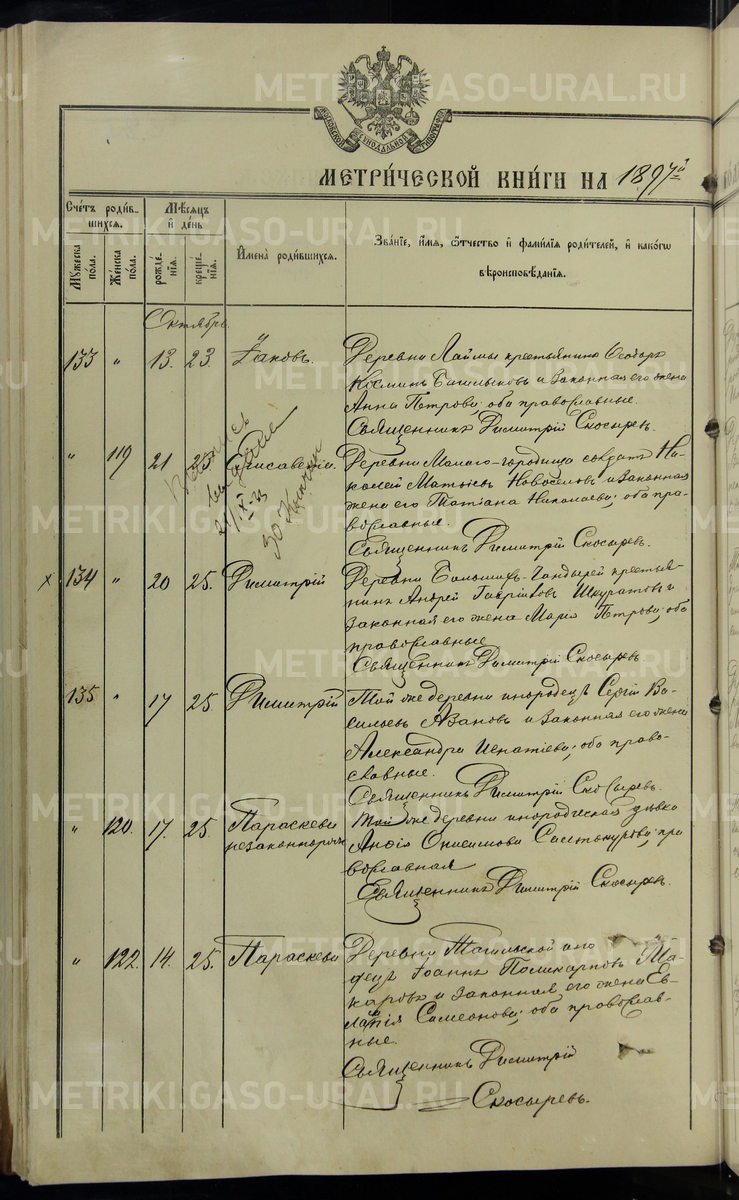 МОСКОВСКОЙ СѴНОДАЛЬНОЙ ТИПОГРАФІИ
МЕТРИ́ЧЕСКОЙ КНИ́ГИ НА 1897й
Счётъ роди́в-
шихся.
Мѣсяцъ
и де́нь
Му́жеска по́ла.
Же́нска по́ла.
рожде́-
нія.
креще́-
нія.
Имена̀ роди́вшихся.
Зва́ніе, и́мя, ѻ́тчество и фами́лія роди́телей, и како́гѡ
вѣроисповѣ́данія.
Октябрь.
133 " 13. 23. Іаковъ.
Деревни Лаймы крестьянинъ Ѳеодоръ
Косминъ и законная его жена
Анна Петрова; оба православные.
Священникъ Димитрій Скосыревъ.
" 119 21 23 Елисавета.
Деревни Малаго-городища солдатъ Ни-
колай Матѳіевъ Новоселовъ и законная
жена его Татіана Николаева; оба пра-
вославные.
Священникъ Димитрій Скосыревъ.
х 134 " 20 25. Димитрій
Деревни крестья-
нинъ Андрей Гавріиловъ Шкуратовъ и
законная его жена Марія Петрова; оба
православные
Священникъ Димитрій Скосыревъ
135 " 17 25. Димитрій
Той же деревни инородецъ Сергій Ва-
сильевъ Азановъ и законная его жена
Александра Игнатіева; оба право-
славные.
Священникъ Димитрій Скосыревъ.
" 120. 17. 25. Параскева
незаконнорож
Той же деревни инородческая дѣвка
Анисимова пра
вославная
Священникъ Димитрій Скосыревъ.
" 122. 14. 25. Параскева
Деревни Тагильской ино
децъ Іоаннъ Поликарповъ Ма-
каровъ и законная его жена Ев
Симеонова; оба православ-
ные.
Священникъ Димитрій
Скосыревъ.
METRIKI.GASO-URAL.RU